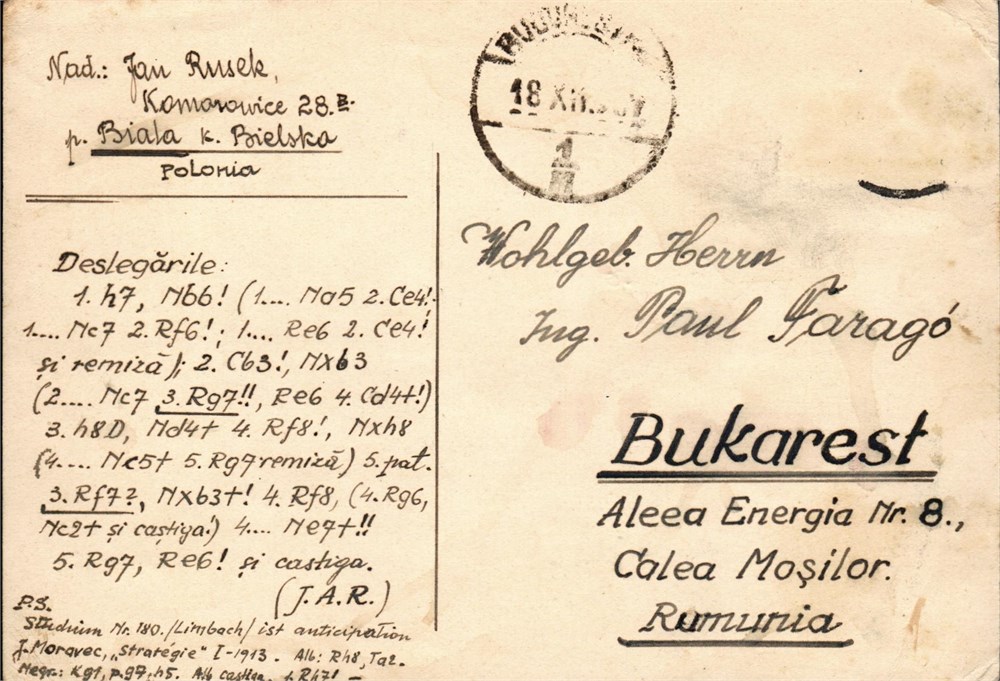 Nad.: Jan Rusek,
Komorowice 28.B.
p. Biala k. Bielska
Polonia
BUCUREȘTI
18 XII.
1
Deslegările:
1. h7, Nb6! (1.... Na5 2. Ce4!
1.... Nc7 2. Rf6!; 1.... Re6 2. Ce4!
și remiză); 2. Cb3!, Nxb3
(2.... Nc7 3. Rg7!!, Re6 4. Cd4+!)
3. h8D, Nd4+ 4. Rf8!, Nxh8
(4.... Nc5+ 5. Rg7 remiză) 5. pat.
3. Rf7?, Nxb3+! 4. Rf8, (4. Rg6,
Nc2+ și caștiga!) 4.... Ne7+!!
5. Rg7, Re6! și castiga.
(J.A.R.)
P.S.
Studium Nr. 180./Limbach/ ist anticipation
J. Moravec, "Strategie" I-1913. Alb: Rh8, Ta2.
Negr.: Kg1, p.g7, h5. Alb castiga. 1. Rh7! –
Wohlgeb. Herrn
Ing. Paul Faragó
Bukarest
Aleea Energia Nr. 8.,
Calea Moșilor.
Rumunia